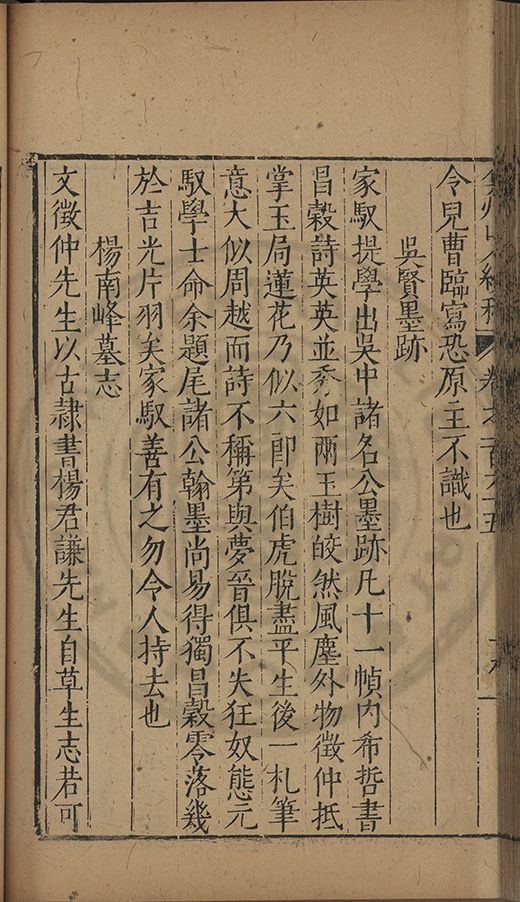 令兒曹臨寫恐原主不識也
吳賢墨跡
家馭提學出吳中諸名公墨跡凡十一幀內希哲書
昌穀詩英英並秀如兩玉樹皎然風塵外物徵仲抵
掌玉局蓮花乃似六郎矣伯虎脫盡平生後一札筆
意大似周越而詩不稱第與夢晉俱不失狂奴態元
馭學士命余題尾諸公翰墨尚易得獨昌穀零落幾
於吉光片羽矣家馭善有之勿令人持去也
楊南峰墓志
文徵仲先生以古隸書楊君謙先生自草生志若可